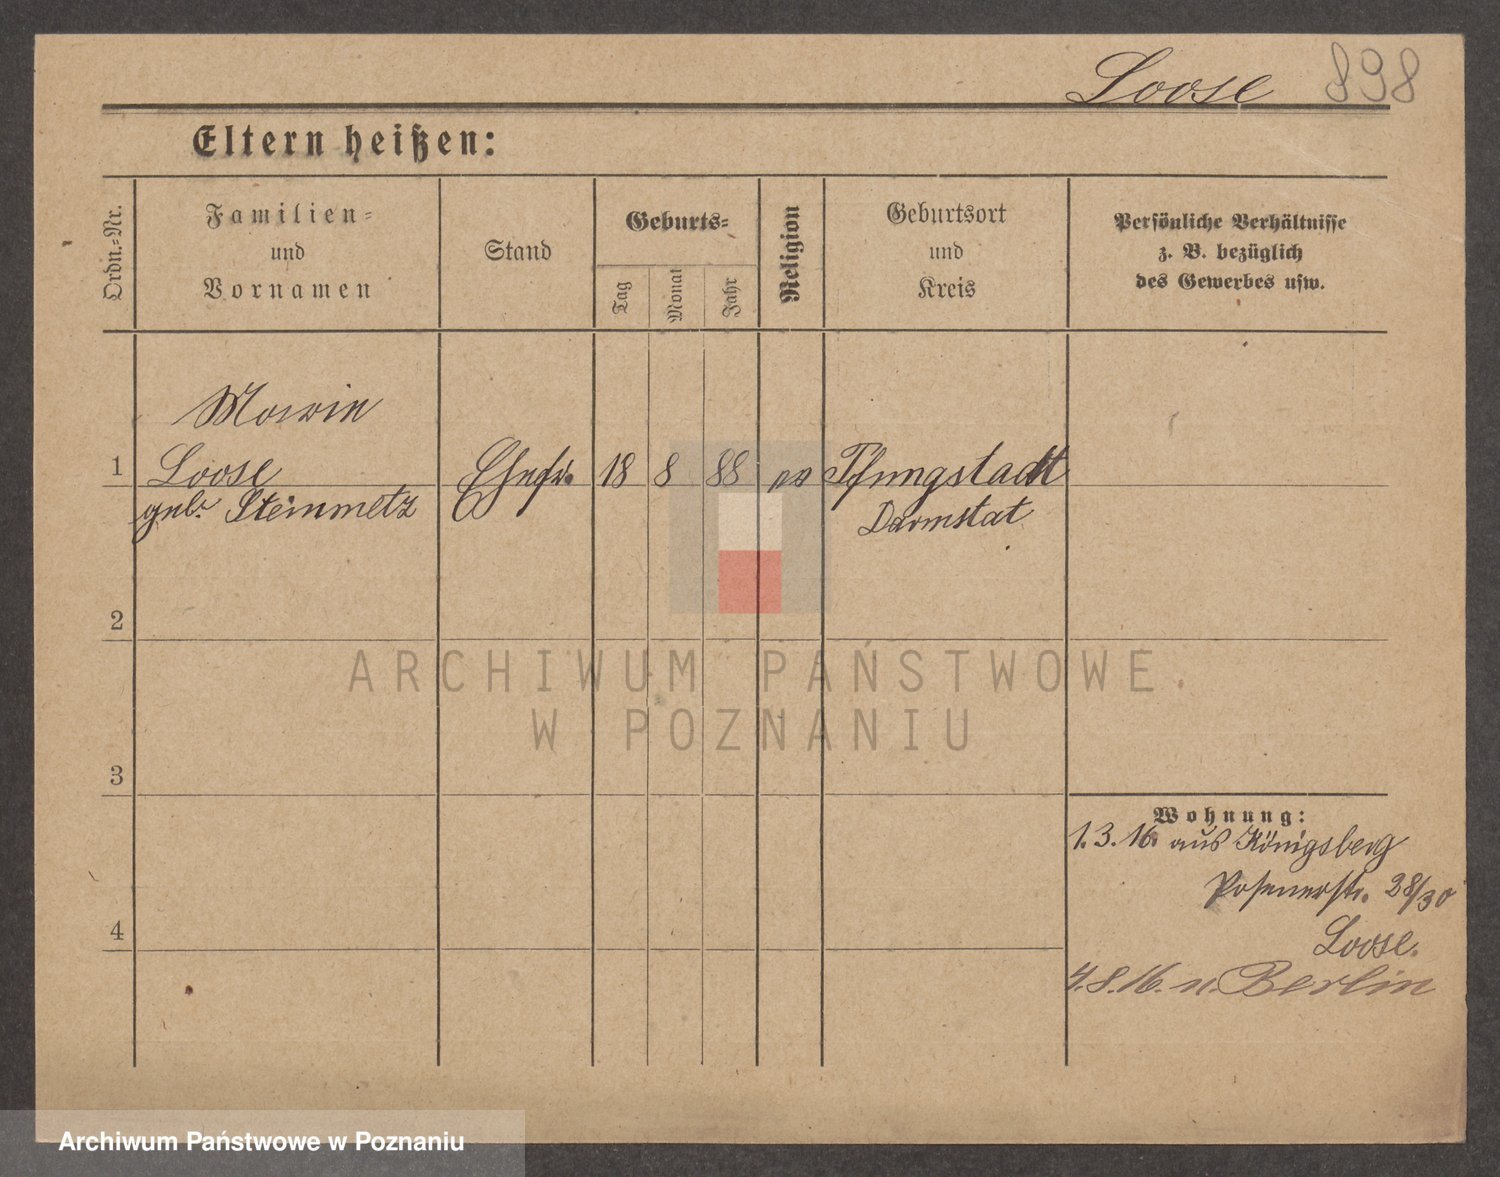 Loose 898
Eltern heißen:
Ordn.-Nr.
Familien-
und
Vornamen
Stand
Geburts-
Tag
Monat
Jahr
Religion
Geburtsort
und
Kreis
Persönliche Verhältnisse
z. B. bezüglich
des Gewerbes usw.
1
Loose
geb. Steinmetz
Ehefr.
18 8 88
Pfungstadt
Darmstat
2
3
4
Wohnung:
1.3.16. aus Königsberg
Posenerstr. 28/30
Loose.
4.8.16. n. Berlin
ARCHIWUM PAŃSTWOWE
W POZNANIU
Archiwum Państwowe w Poznaniu